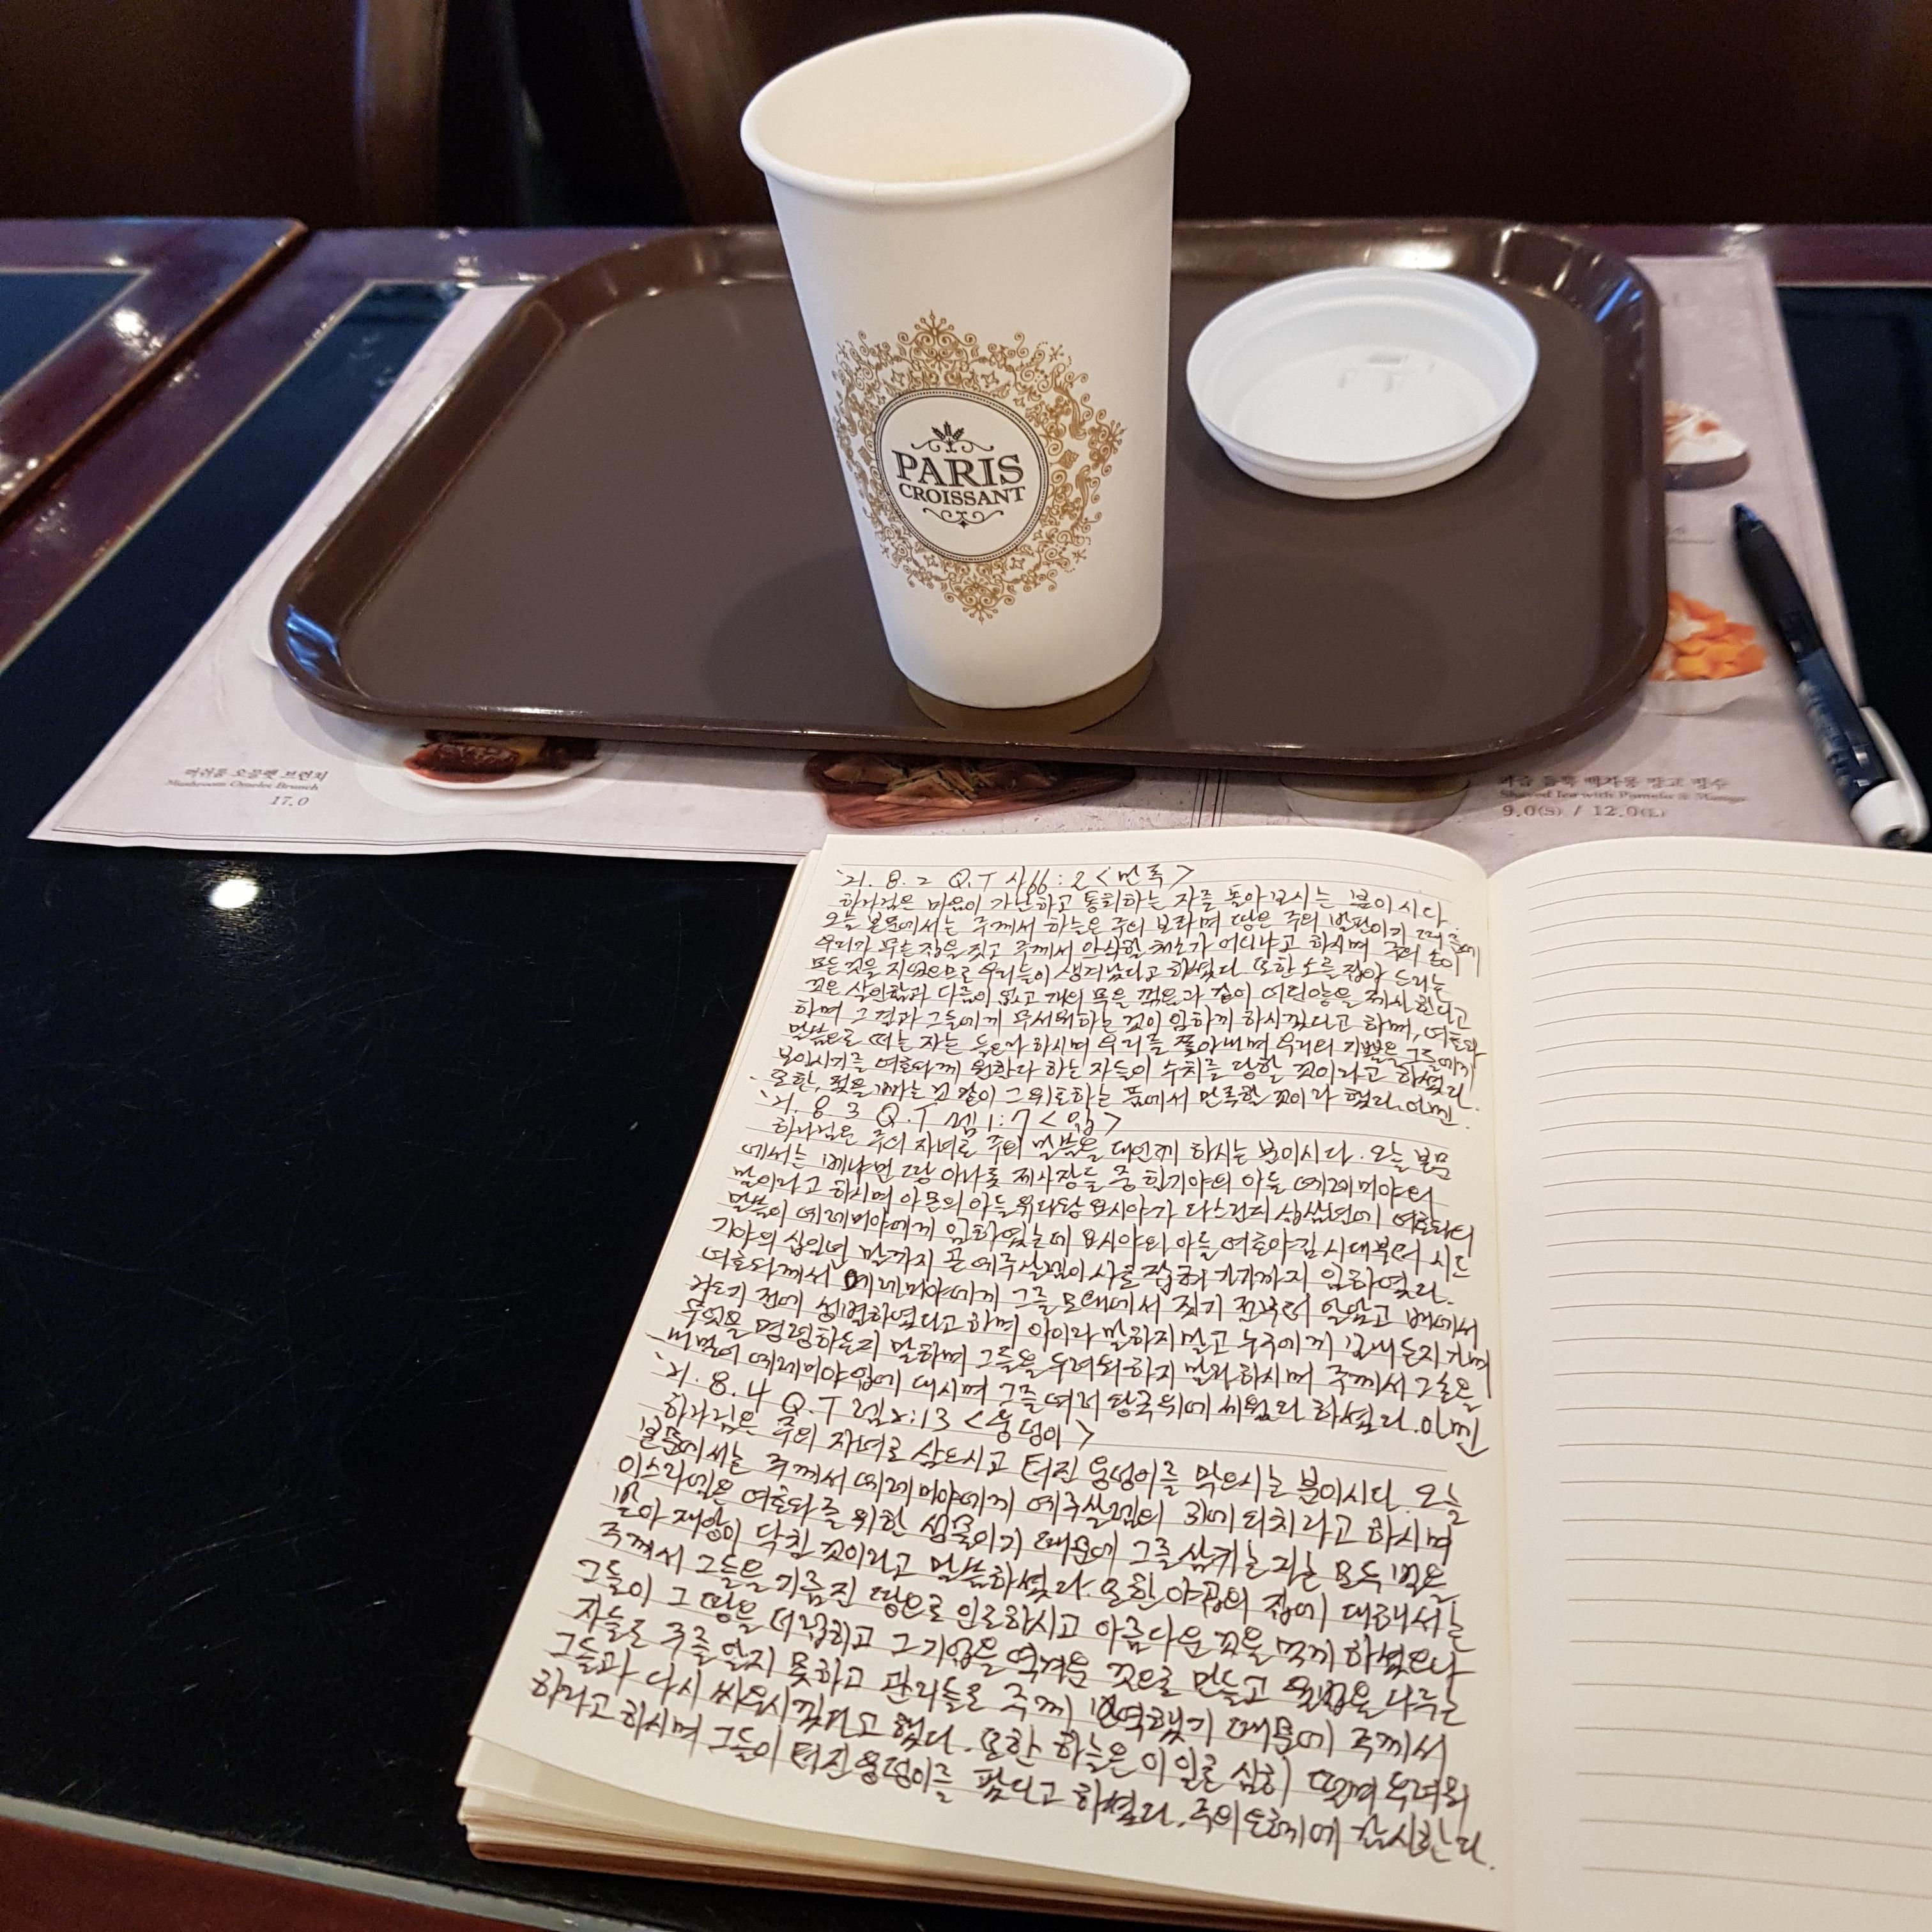 PARIS
CROISSANT
머쉬룸 오믈렛 브런치
Mushroom Omelet Brunch
17.0
9.0(S) / 12.0(L)
'21. 8. 2 Q.T 사66:2 <만족>
하나님은 마음이 가난하고 통회하는 자를 돌아보시는 분이시다.
오늘 본문에서는 주께서 하늘은 주의 보좌며 땅은 주의 발판이기 때문에
우리가 무슨 집을 짓고 주께서 안식할 처소가 어디냐고 하시며 주의 손이
모든 것을 지었으므로 우리들이 생겨났다고 하셨다. 또한 소를 잡아 드리는
것은 살인함과 다름이 없고 개의 목을 꺾음과 같이 어린양을 제사한다고
하며 그 결과 그들에게 무서워하는 것이 임하게 하시겠다고 하며, 여호와
말씀으로 떠는 자는 들으라 하시며 우리를 쫓아내며 우리의 기쁨을 그들에게
보이시기를 여호와께 원한다 하는 자들이 수치를 당할 것이라고 하셨다.
또한, 젖을 빠는 것 같이 그 위로하는 품에서 만족할 것이라 했다. 아멘.
'21. 8. 3 Q.T 렘1:7 <입>
하나님은 주의 자녀로 주의 말씀을 대언케 하시는 분이시다. 오늘 본문
에서는 베냐민 땅 아나돗 제사장들 중 힐기야의 아들 예레미야의
말이라고 하시며 아몬의 아들 유다왕 요시야가 다스린지 십삼년에 여호와의
말씀이 예레미야에게 임하였는데 요시야의 아들 여호야김 시대부터 시드
기야의 십일년 말까지 곧 예루살렘이 사로잡혀 가기까지 임하였다.
여호와께서 예레미야에게 그를 모태에서 짓기 전부터 알았고 배에서
나오기 전에 성별하였다고 하며 아이라 말하지 말고 누구에게 보내든지 가며
무엇을 명령하든지 말하며 그들을 두려워하지 말라 하시며 주께서 그 손을
내밀어 예레미야 입에 대시며 그를 여러 왕국 위에 세웠다 하셨다. 아멘
'21. 8. 4 Q.T 렘2:13 <웅덩이>
하나님은 주의 자녀로 삼으시고 터진 웅덩이를 막으시는 분이시다. 오늘
본문에서는 주께서 예레미야에게 예루살렘의 귀에 외치라고 하시며
이스라엘은 여호와를 위한 성물이기 때문에 그를 삼키는 자는 모두 벌을
받아 재앙이 닥친 것이라고 말씀하셨다. 또한 야곱의 집에 대해서는
주께서 그들을 기름진 땅으로 인도하시고 아름다운 것을 먹게 하셨으나
그들이 그 땅을 더럽히고 그 기업을 역겨운 것으로 만들고 율법을 다루는
자들도 주를 알지 못하고 관리들도 주께 반역했기 때문에 주께서
그들과 다시 싸우시겠다고 했다. 또한 하늘은 이 일로 심히 떨며 두려워
하라고 하시며 그들이 터진 웅덩이를 팠다고 하셨다. 주의 은혜에 감사한다.